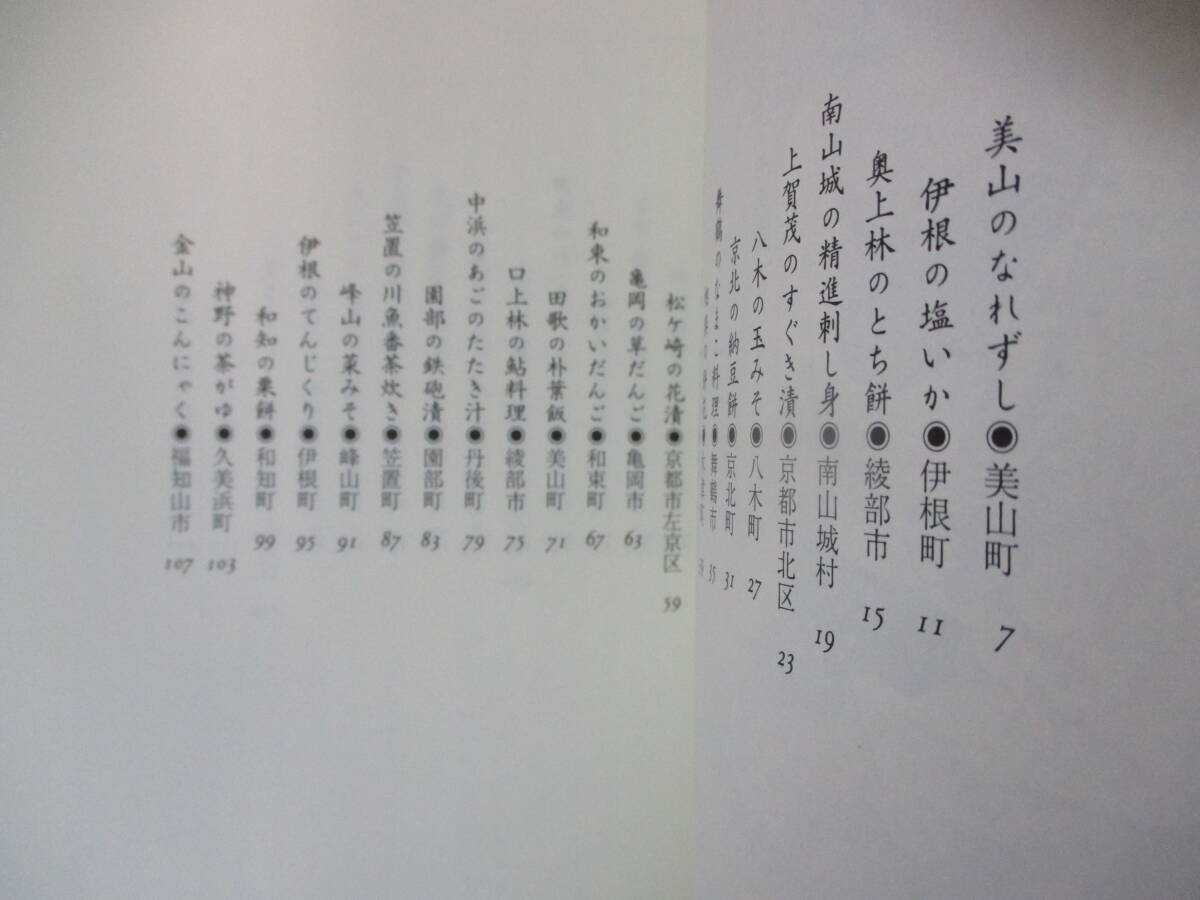 美山のなれずし◉美山町 7
伊根の塩いか◉伊根町 11
奥上林のとち餅◉綾部市 15
南山城の精進刺し身◉南山城村 19
上賀茂のすぐき漬◉京都市北区 23
八木の玉みそ◉八木町 27
京北の納豆餅◉京北町 31
舞鶴のなまこ料理◉舞鶴市 35
松ケ崎の花漬◉京都市左京区 59
亀岡の草だんご◉亀岡市 63
和束のおかいだんご◉和束町 67
田歌の朴葉飯◉美山町 71
口上林の鮎料理◉綾部市 75
中浜のあごのたたき汁◉丹後町 79
園部の鉄砲漬◉園部町 83
笠置の川魚番茶炊き◉笠置町 87
峰山の菜みそ◉峰山町 91
伊根のてんじくり◉伊根町 95
和知の栗餅◉和知町 99
神野の茶がゆ◉久美浜町 103
金山のこんにゃく◉福知山市 107